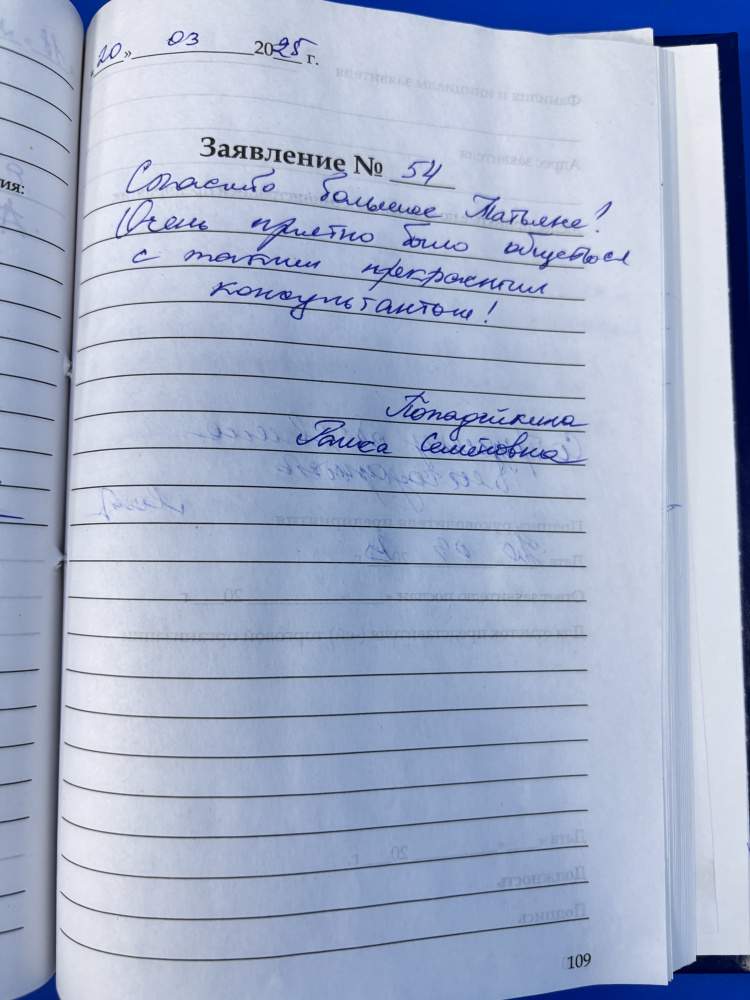 «20» 03 2025 г.
Заявление № 54
Спасибо большое Татьяне!
Очень приятно было общаться
с таким прекрасным
консультантом!
Попадейкина
Раиса Семёновна
ия:
109